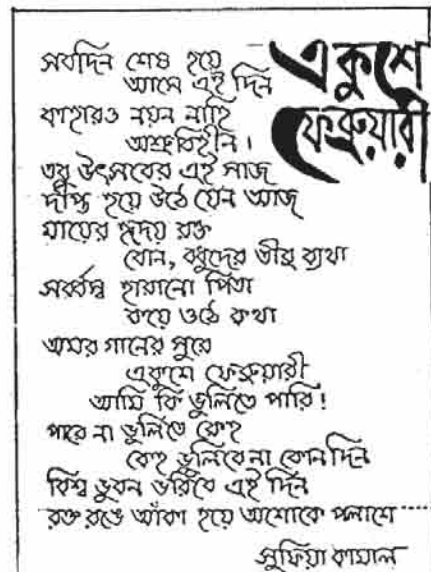 একুশে
ফেব্রুয়ারী
সবদিন শেষ হয়ে
আসে এই দিন
কাহারও নয়ন নাহি
অশ্রুবিহীন।
তবু উৎসবের এই সাজ
দীপ্ত হয়ে উঠে যেন আজ
মায়ের হৃদয় রক্ত
বোন, বধুদের তীব্র ব্যথা
সর্বস্ব হারানো পিতা
কয়ে ওঠে কথা
অমর গানের সুরে
একুশে ফেব্রুয়ারী
আমি কি ভুলিতে পারি!
পারে না ভুলিতে কেহ
কেহ ভুলিবেনা কোন দিন
বিশ্ব ভুবন ভরিবে এই দিন
রক্ত রঙে আঁকা হয়ে অশোকে পলাশে
সুফিয়া কামাল